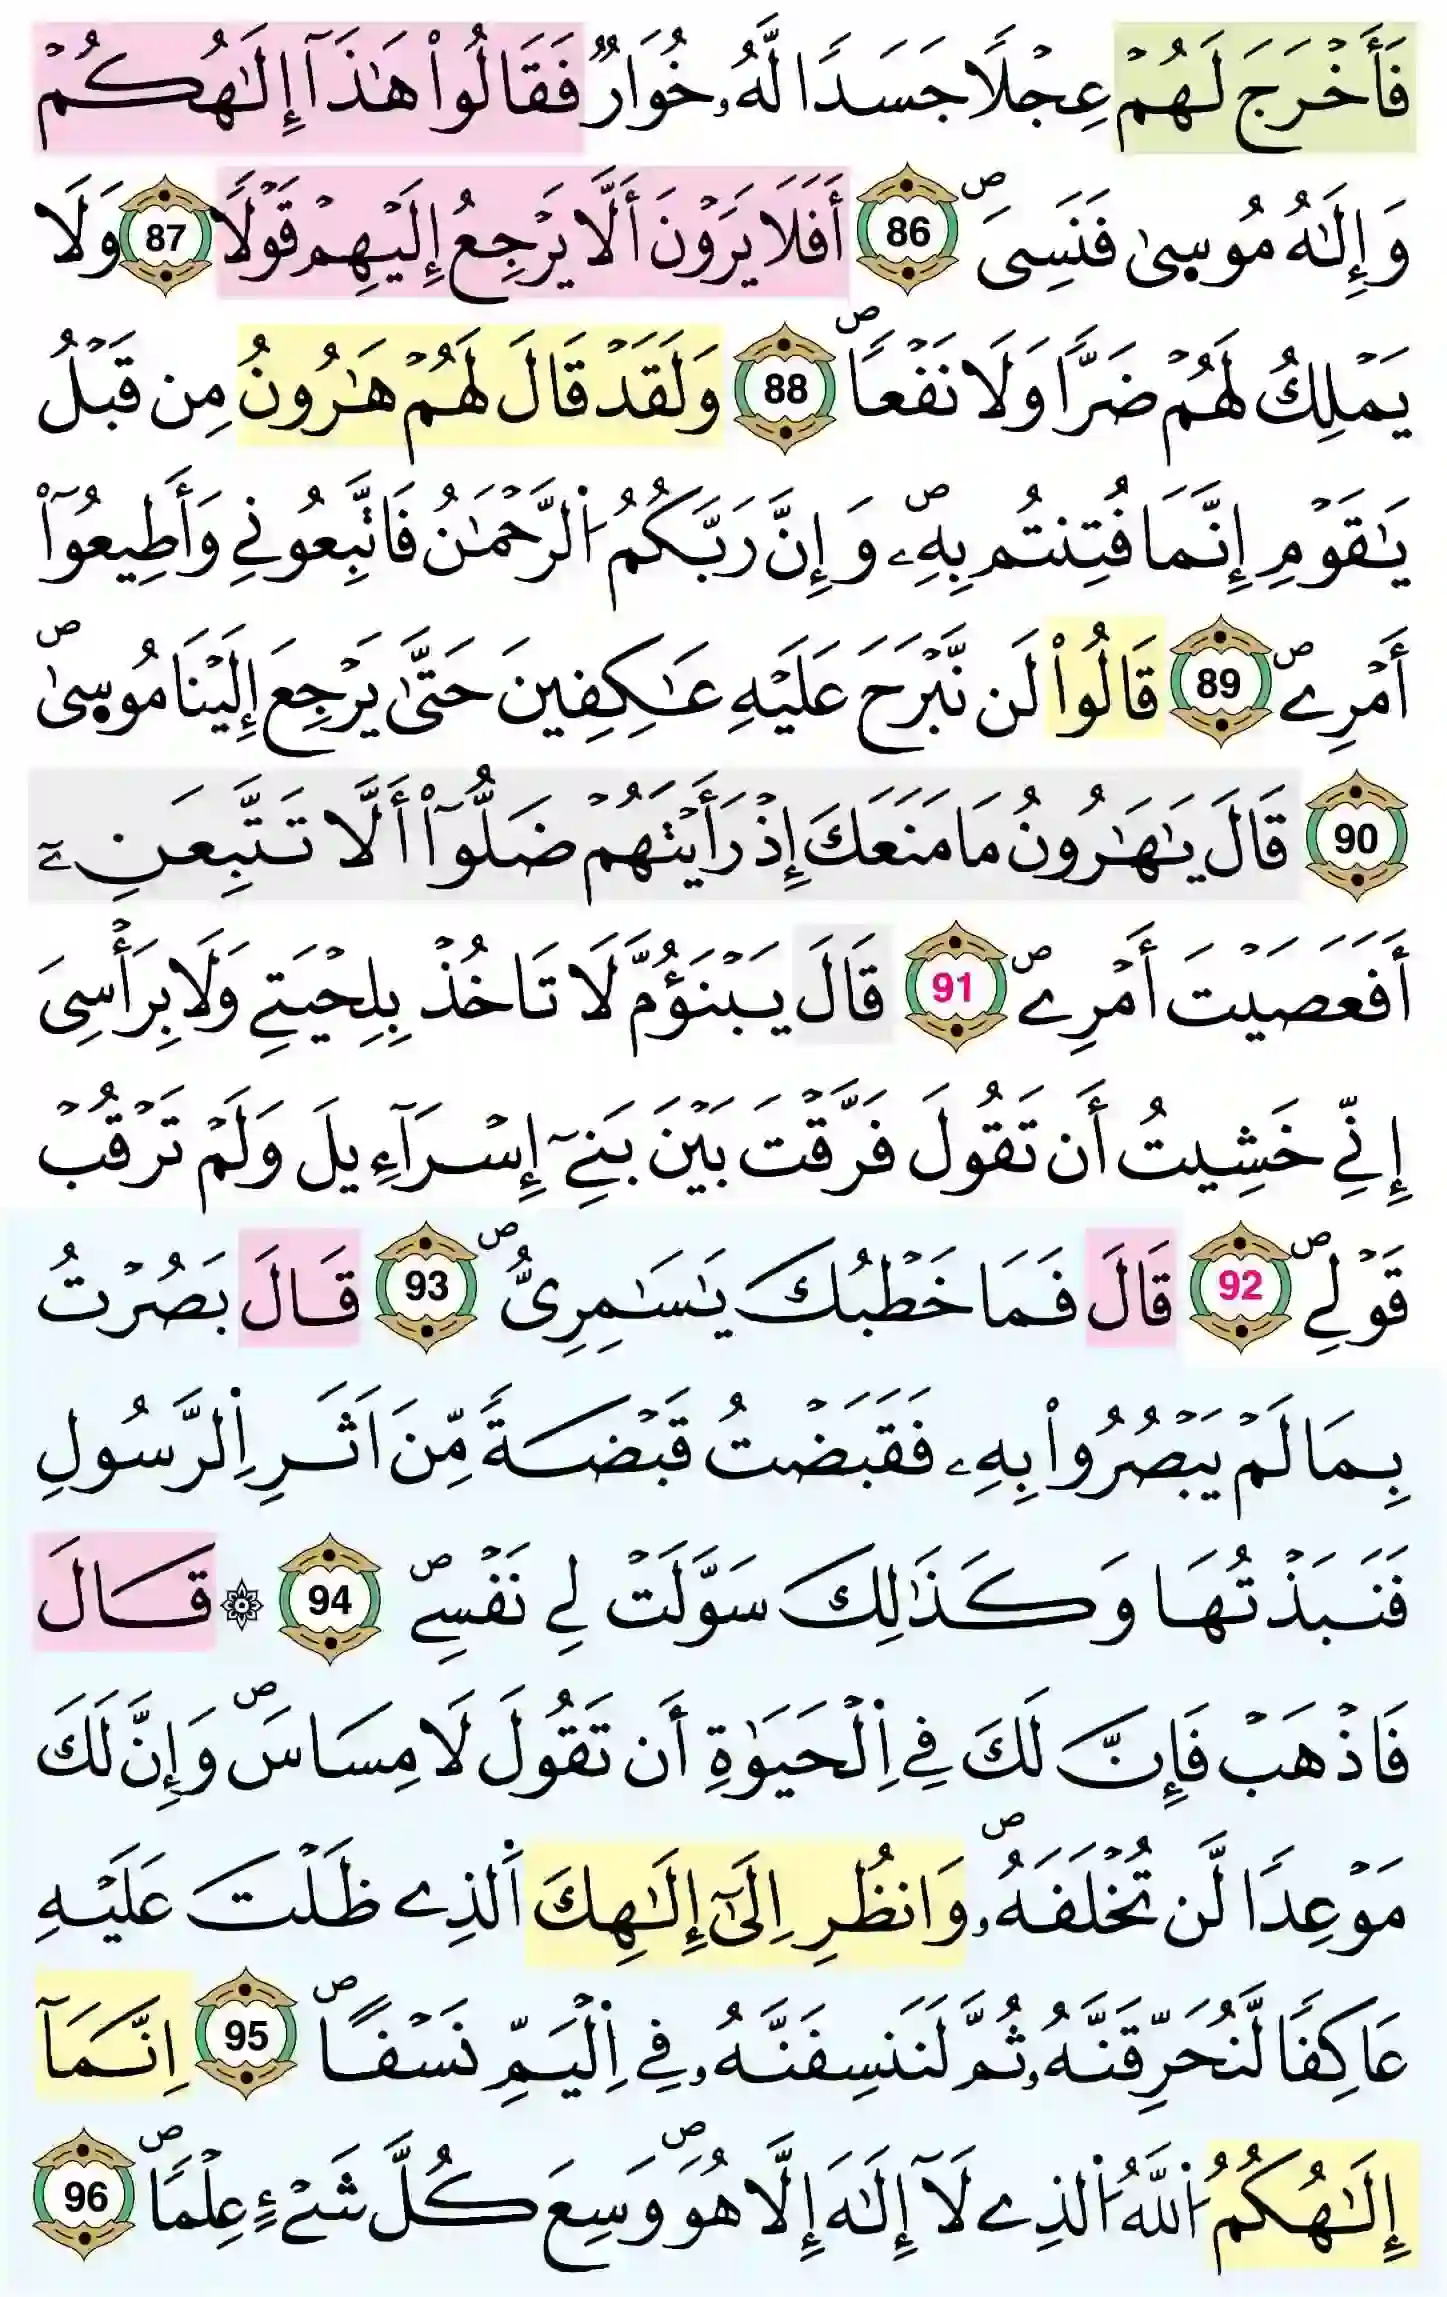 فَأَخْرَجَ لَهُمْ عِجْلًا جَسَدًا لَّهُۥ خُوَارٌ فَقَالُواْ هَٰذَآ إِلَٰهُكُمْ
وَإِلَٰهُ مُوسۭيٰ فَنَسِيَۖ 86 أَفَلَا يَرَوْنَ أَلَّا يَرْجِعُ إِلَيْهِمْ قَوْلًا 87 وَلَا
يَمْلِكُ لَهُمْ ضَرًّا وَلَا نَفْعًاۖ 88 وَلَقَدْ قَالَ لَهُمْ هَٰرُونُ مِن قَبْلُ
يَٰقَوْمِ إِنَّمَا فُتِنتُم بِهِۦۖ وَإِنَّ رَبَّكُمُ اُ۬لرَّحْمَٰنُ فَاتَّبِعُونِے وَأَطِيعُوٓاْ
أَمْرِےۖ 89 قَالُواْ لَن نَّبْرَحَ عَلَيْهِ عَٰكِفِينَ حَتَّىٰ يَرْجِعَ إِلَيْنَا مُوسۭيٰۖ
90 قَالَ يَٰهَٰرُونُ مَا مَنَعَكَ إِذْ رَأَيْتَهُمْ ضَلُّوٓاْ أَلَّا تَتَّبِعَنِۦٓ
أَفَعَصَيْتَ أَمْرِےۖ 91 قَالَ يَبْنَؤُمَّ لَا تَاخُذْ بِلِحْيَتِے وَلَا بِرَأْسِيَ
إِنِّے خَشِيتُ أَن تَقُولَ فَرَّقْتَ بَيْنَ بَنِےٓ إِسْرَآءِيلَ وَلَمْ تَرْقُبْ
قَوْلِےۖ 92 قَالَ فَمَا خَطْبُكَ يَٰسَٰمِرِيُّۖ 93 قَالَ بَصُرْتُ
بِمَا لَمْ يَبْصُرُواْ بِهِۦ فَقَبَضْتُ قَبْضَةً مِّنَ اَثَرِ اِ۬لرَّسُولِ
فَنَبَذْتُهَا وَكَذَٰلِكَ سَوَّلَتْ لِے نَفْسِےۖ 94 ۞ قَالَ
فَاذْهَبْ فَإِنَّ لَكَ فِے اِ۬لْحَيَوٰةِ أَن تَقُولَ لَا مِسَاسَۖ وَإِنَّ لَكَ
مَوْعِدًا لَّن تُخْلَفَهُۥۖ وَانظُرِ اِلَىٰٓ إِلَٰهِكَ اَ۬لذِے ظَلْتَ عَلَيْهِ
عَاكِفًا لَّنُحَرِّقَنَّهُۥ ثُمَّ لَنَنسِفَنَّهُۥ فِے اِ۬لْيَمِّ نَسْفًاۖ 95 اِنَّمَآ
إِلَٰهُكُمُ اُ۬للَّهُ اُ۬لذِے لَآ إِلَٰهَ إِلَّا هُوَۖ وَسِعَ كُلَّ شَےْءٍ عِلْمًاۖ 96